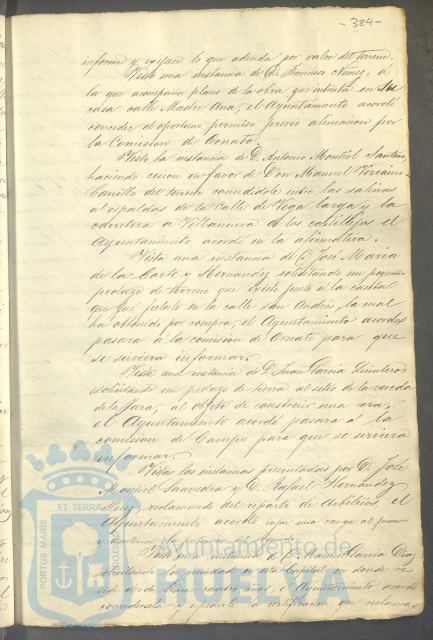 -384-
informe y exijase lo que adeuda por valor del terreno.
Vista una instancia de D. Francisco Nuñez, á
la que acompaña plano de la obra que intenta en su
casa calle Madre Ana, el Ayuntamiento acordó
conceder el oportuno permiso previo alineacion por
la Comision de Ornato.
Vista la instancia de D. Antonio Montiel Santana
haciendo cesion en favor de Don Manuel Vizcaino
Carrillo del terreno concedidole entre las salinas
a espaldas de la Calle de Vega larga y la
carretera a Villanueva de los castillejos el
Ayuntamiento acordó en la afirmativa.
Vista una instancia de D. José Maria
de la Corte y Hernandez solicitando un pequeño
pedazo de terreno que existe junto a la casa
en la calle San Andrés, la cual
ha obtenido por compra, el Ayuntamiento acordó
pasara á la comision de Ornato para que
se sirviera informar.
Vista una instancia de D. Juan Garcia Quintero
solicitando un pedazo de tierra al sitio de la vereda
de la Jara, al objeto de construir una era,
el Ayuntamiento acordó pasara á la
comision de Campo para que se sirviera
informar.
Vistas las instancias presentadas por D. José
Montiel Saavedra y D. Rafael Hernandez
reclamando del reparto de Arbitrios, el
Ayuntamiento acordó una carga al primero
y
Vista una instancia de D. Garcia Diaz
solicitando la vecindad en esta Capital en donde re-
side desde hace cuatro años, el Ayuntamiento acordó
concedersela y expedirle la certificacion que reclama.
PORTUS MARIS
ET TERRAE
Ayuntamiento de
HUELVA